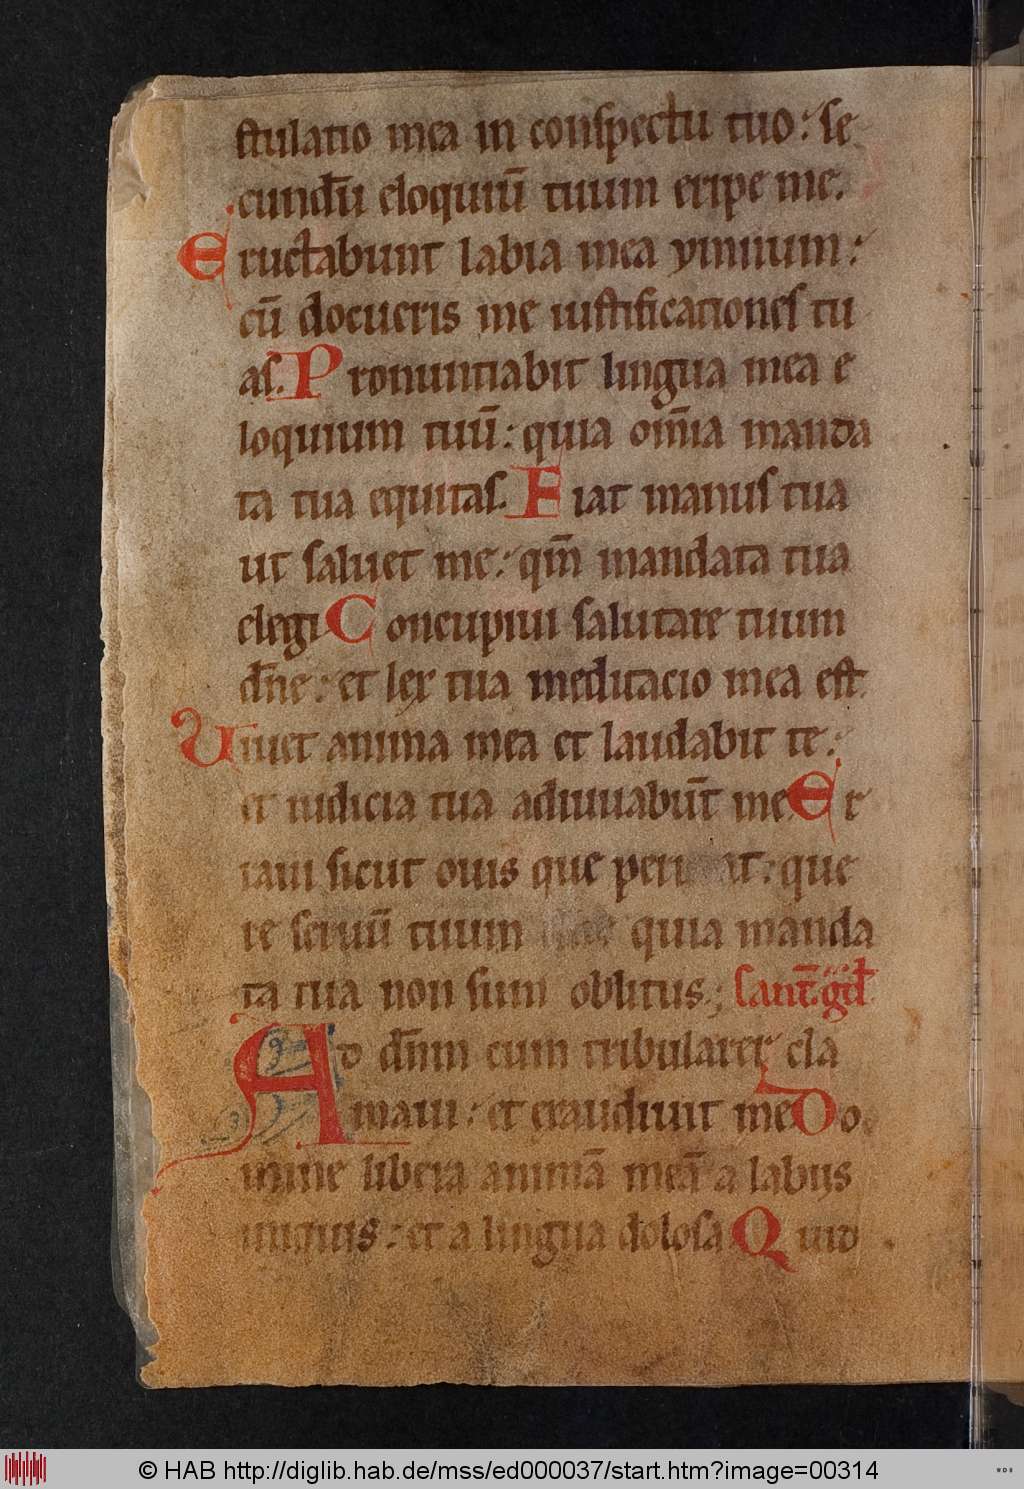 stulatio mea in conspectu tuo: se
cundū eloquiū tuum eripe me.
Eructabunt labia mea ymnum:
cū docueris me iustificationes tu
as. Pronuntiabit lingua mea e
loquium tuū: quia om̄ia manda
ta tua equitas. Fiat manus tua
ut saluet me: qm̄ mandata tua
elegi Concupiui salutare tuum
dn̄e: et lex tua meditacio mea est
Uiuet anima mea et laudabit te:
et iudicia tua adiuuabūt me Er
raui sicut ouis que periit: que
re seruū tuum quia manda
ta tua non sum oblitus;
Ad dn̄m cum tribularer cla
maui: et exaudiuit me Do
mine libera animā meā a labijs
iniquis: et a lingua dolosa Quid
© HAB http://diglib.hab.de/mss/ed000037/start.htm?image=00314